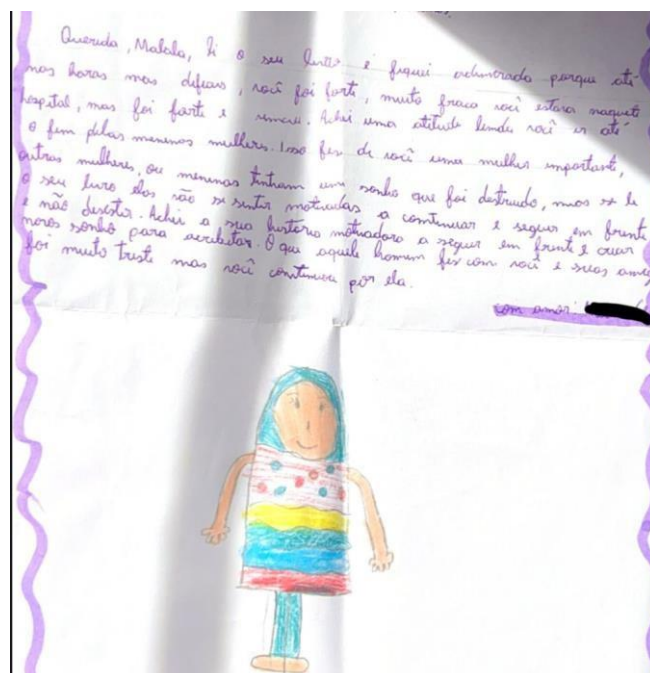 Querida, Malala, li o seu livro e fiquei admirada porque até
nas horas mas dificeis, você foi forte, muito fraca você estava naquele
hospital, mas foi forte e venceu. Achei uma atitude linda você ir até
o fim pelas meninas mulheres. Isso fez de você uma mulher importante,
outras mulheres, ou meninas tinham um sonho que foi destruido, mas se
o seu livro elas vão se sentir motivadas a continuar e seguir em frente
e não desistir. Achei a sua história motivadora a seguir em frente e criar
novos sonho para acreditar. O que aquele homem fez com você e suas
foi muito triste mas você continuou por ela.
com amor: